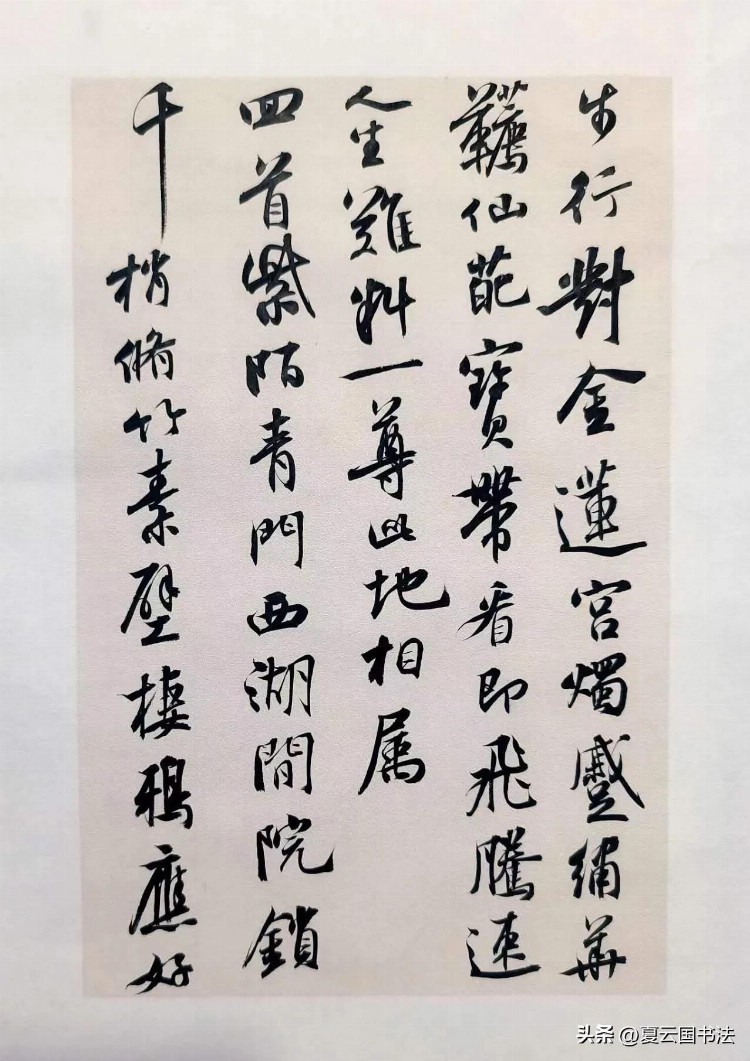 步行對金蓮宮燭蹙繡華
韉仙葩寶帶看即飛騰速
人生難料一尊此地相属
回首紫陌青門西湖閒院鎖
千梢脩竹素壁棲鴉應好
头条 @夏云国书法